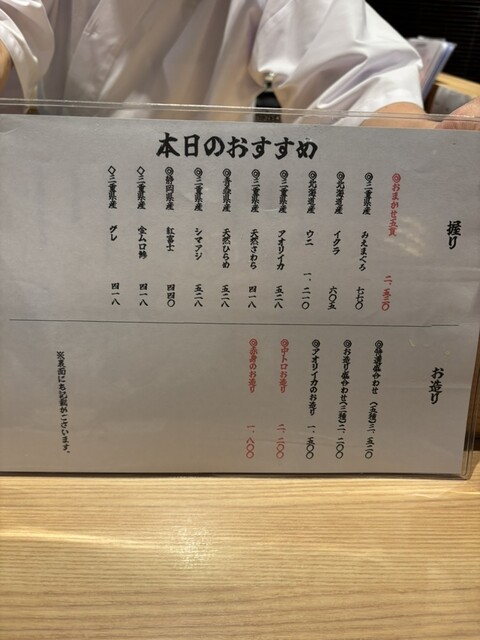 本日のおすすめ
握り
◎おまかせ五貫 二、五三〇
◎三重県産 みえまぐろ 七七〇
◎北海道産 イクラ 六〇五
◎北海道産 ウニ 一、二一〇
◎三重県産 アオリイカ 五二八
◎三重県産 天然さわら 四一八
◎青森県産 天然ひらめ 五二八
◎三重県産 シマアジ 五二八
◎静岡県産 紅富士 四四〇
◇三重県産 金ムロ鯵 四一八
◇三重県産 グレ 四一八
お造り
◎特選盛合わせ(五種)三、五二〇
◎お造り盛合わせ(三種)二、二〇〇
◎アオリイカのお造り 一、五〇〇
◎中トロお造り 二、二〇〇
◎赤身のお造り 一、八〇〇
※裏面にも記載がございます。